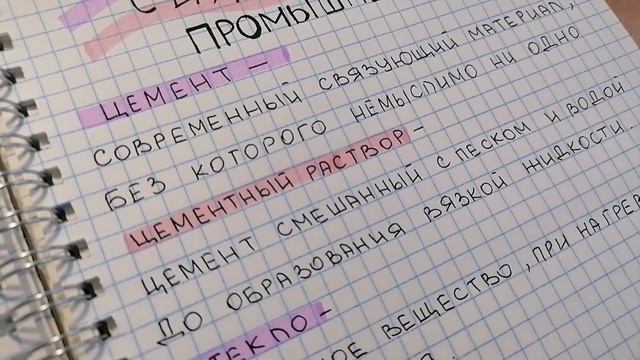 ЦЕМЕНТ –
СОВРЕМЕННЫЙ СВЯЗУЮЩИЙ МАТЕРИАЛ,
БЕЗ КОТОРОГО НЕМЫСЛИМО НИ ОДНО
ЦЕМЕНТНЫЙ РАСТВОР –
ЦЕМЕНТ СМЕШАННЫЙ С ПЕСКОМ И ВОДОЙ
ДО ОБРАЗОВАНИЯ ВЯЗКОЙ ЖИДКОСТИ.
ВЕЩЕСТВО, ПРИ